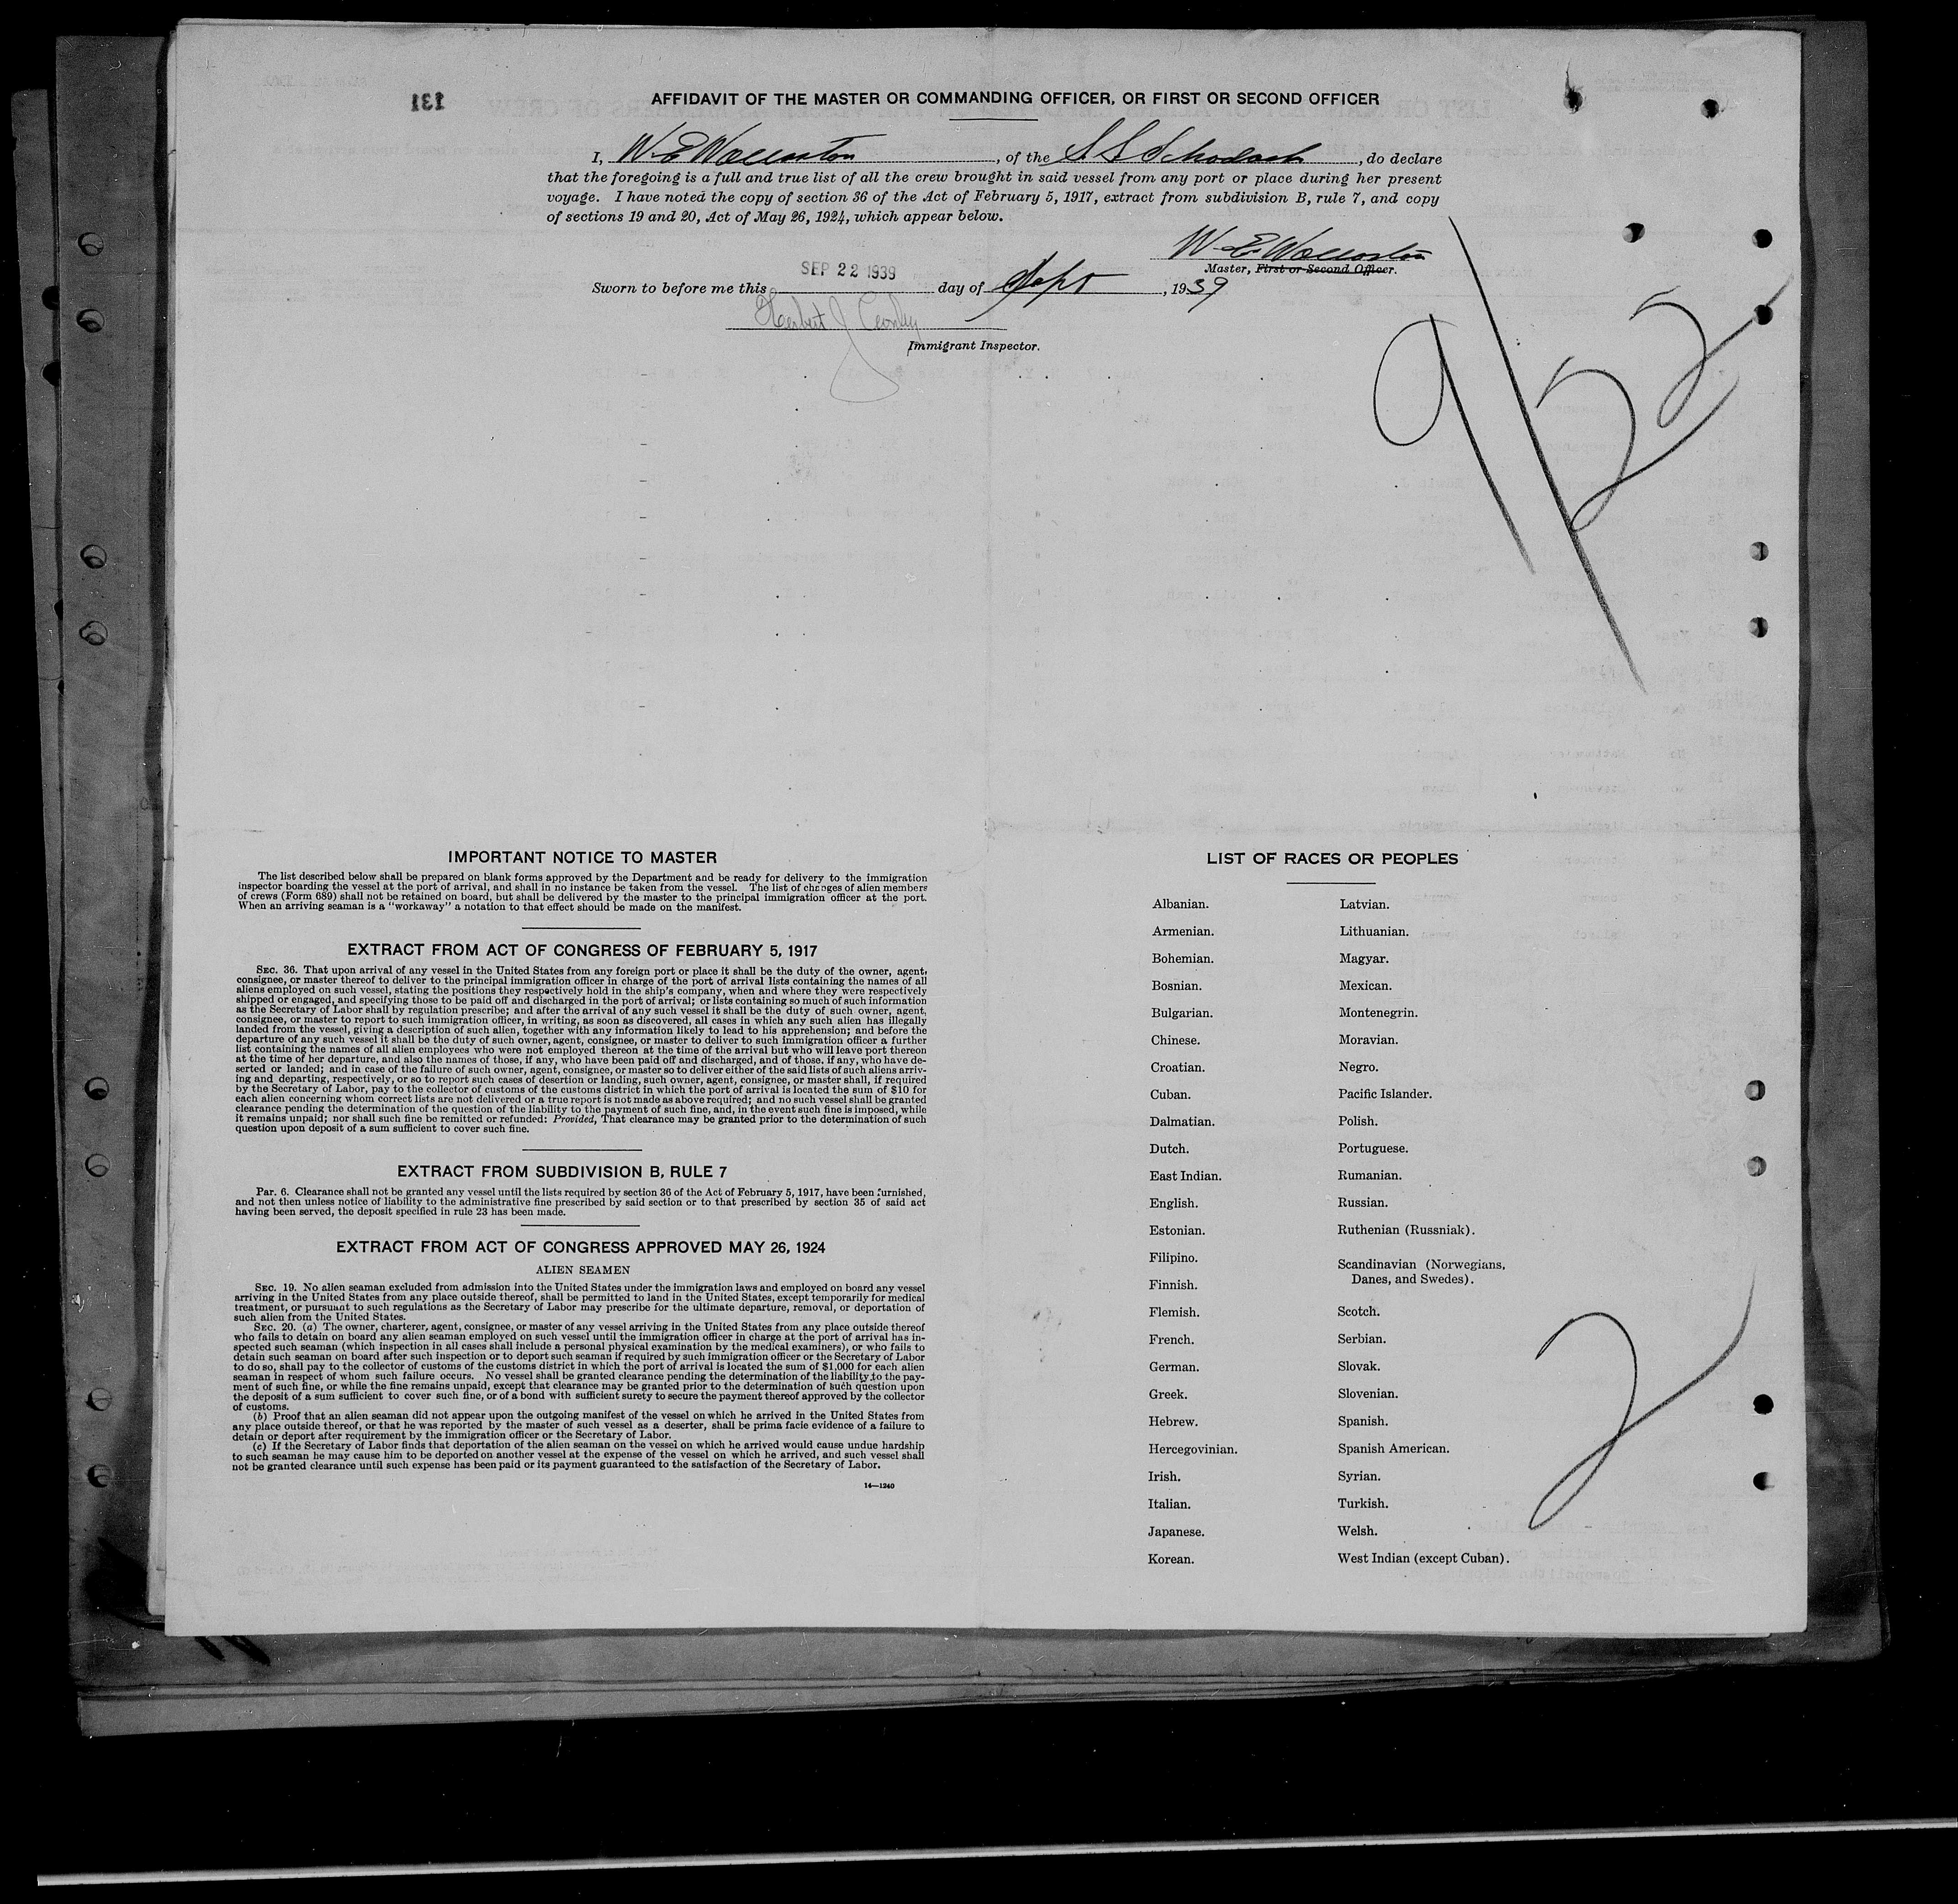 131
AFFIDAVIT OF THE MASTER OR COMMANDING OFFICER, OR FIRST OR SECOND OFFICER
I, W. E. Wollaston, of the S.S. Schodack, do declare
that the foregoing is a full and true list of all the crew brought in said vessel from any port or place during her present
voyage. I have noted the copy of section 36 of the Act of February 5, 1917, extract from subdivision B, rule 7, and copy
of sections 19 and 20, Act of May 26, 1924, which appear below.
W. E. Wollaston
Master, First or Second Officer.
Sworn to before me this SEP 22 1939 day of Sept, 1939
Herbert J.
Immigrant Inspector.
9/22
IMPORTANT NOTICE TO MASTER
The list described below shall be prepared on blank forms approved by the Department and be ready for delivery to the immigration
inspector boarding the vessel at the port of arrival, and shall in no instance be taken from the vessel. The list of changes of alien members
of crews (Form 689) shall not be retained on board, but shall be delivered by the master to the principal immigration officer at the port.
When an arriving seaman is a "workaway" a notation to that effect should be made on the manifest.
EXTRACT FROM ACT OF CONGRESS OF FEBRUARY 5, 1917
SEC. 36. That upon arrival of any vessel in the United States from any foreign port or place it shall be the duty of the owner, agent,
consignee, or master thereof to deliver to the principal immigration officer in charge of the port of arrival lists containing the names of all
aliens employed on such vessel, stating the positions they respectively hold in the ship's company, when and where they were respectively
shipped or engaged, and specifying those to be paid off and discharged in the port of arrival; or lists containing so much of such information
as the Secretary of Labor shall by regulation prescribe; and after the arrival of any such vessel it shall be the duty of such owner, agent,
consignee, or master to report to such immigration officer, in writing, as soon as discovered, all cases in which any such alien has illegally
landed from the vessel, giving a description of such alien, together with any information likely to lead to his apprehension; and before the
departure of any such vessel it shall be the duty of such owner, agent, consignee, or master to deliver to such immigration officer a further
list containing the names of all alien employees who were not employed thereon at the time of the arrival but who will leave port thereon
at the time of her departure, and also the names of those, if any, who have been paid off and discharged, and of those, if any, who have de-
serted or landed; and in case of the failure of such owner, agent, consignee, or master so to deliver either of the said lists of such aliens arriv-
ing and departing, respectively, or so to report such cases of desertion or landing, such owner, agent, consignee, or master shall, if required
by the Secretary of Labor, pay to the collector of customs of the customs district in which the port of arrival is located the sum of $10 for
each alien concerning whom correct lists are not delivered or a true report is not made as above required; and no such vessel shall be granted
clearance pending the determination of the question of the liability to the payment of such fine, and, in the event such fine is imposed, while
it remains unpaid; nor shall such fine be remitted or refunded: Provided, That clearance may be granted prior to the determination of such
question upon deposit of a sum sufficient to cover such fine.
EXTRACT FROM SUBDIVISION B, RULE 7
Par. 6. Clearance shall not be granted any vessel until the lists required by section 36 of the Act of February 5, 1917, have been furnished,
and not then unless notice of liability to the administrative fine prescribed by said section or to that prescribed by section 35 of said act
having been served, the deposit specified in rule 23 has been made.
EXTRACT FROM ACT OF CONGRESS APPROVED MAY 26, 1924
ALIEN SEAMEN
SEC. 19. No alien seaman excluded from admission into the United States under the immigration laws and employed on board any vessel
arriving in the United States from any place outside thereof, shall be permitted to land in the United States, except temporarily for medical
treatment, or pursuant to such regulations as the Secretary of Labor may prescribe for the ultimate departure, removal, or deportation of
such alien from the United States.
SEC. 20. (a) The owner, charterer, agent, consignee, or master of any vessel arriving in the United States from any place outside thereof
who fails to detain on board any alien seaman employed on such vessel until the immigration officer in charge at the port of arrival has in-
spected such seaman (which inspection in all cases shall include a personal physical examination by the medical examiners), or who fails to
detain such seaman on board after such inspection or to deport such seaman if required by such immigration officer or the Secretary of Labor
to do so, shall pay to the collector of customs of the customs district in which the port of arrival is located the sum of $1,000 for each alien
seaman in respect of whom such failure occurs. No vessel shall be granted clearance pending the determination of the liability to the pay-
ment of such fine, or while the fine remains unpaid, except that clearance may be granted prior to the determination of such question upon
the deposit of a sum sufficient to cover such fine, or of a bond with sufficient surety to secure the payment thereof approved by the collector
of customs.
(b) Proof that an alien seaman did not appear upon the outgoing manifest of the vessel on which he arrived in the United States from
any place outside thereof, or that he was reported by the master of such vessel as a deserter, shall be prima facie evidence of a failure to
detain or deport after requirement by the immigration officer or the Secretary of Labor.
(c) If the Secretary of Labor finds that deportation of the alien seaman on the vessel on which he arrived would cause undue hardship
to such seaman he may cause him to be deported on another vessel at the expense of the vessel on which he arrived, and such vessel shall
not be granted clearance until such expense has been paid or its payment guaranteed to the satisfaction of the Secretary of Labor.
14—1240
LIST OF RACES OR PEOPLES
Albanian.
Armenian.
Bohemian.
Bosnian.
Bulgarian.
Chinese.
Croatian.
Cuban.
Dalmatian.
Dutch.
East Indian.
English.
Estonian.
Filipino.
Finnish.
Flemish.
French.
German.
Greek.
Hebrew.
Hercegovinian.
Irish.
Italian.
Japanese.
Korean.
Latvian.
Lithuanian.
Magyar.
Mexican.
Montenegrin.
Moravian.
Negro.
Pacific Islander.
Polish.
Portuguese.
Rumanian.
Russian.
Ruthenian (Russniak).
Scandinavian (Norwegians,
Danes, and Swedes).
Scotch.
Serbian.
Slovak.
Slovenian.
Spanish.
Spanish American.
Syrian.
Turkish.
Welsh.
West Indian (except Cuban).
2